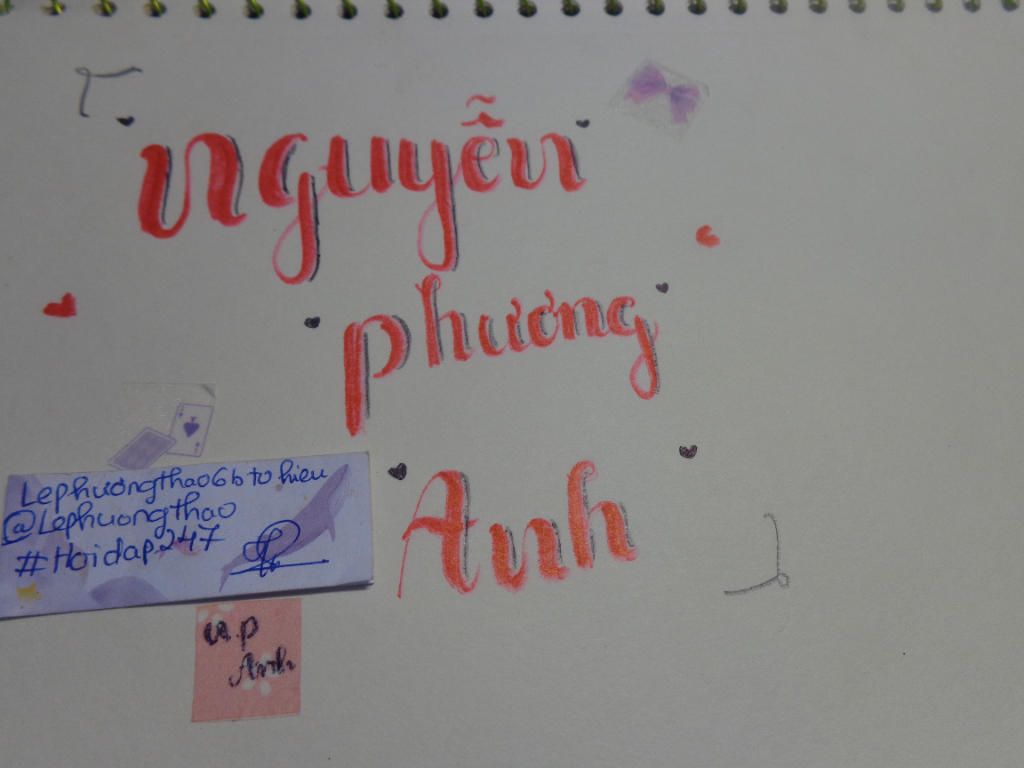 Nguyễn
Phương
Anh
Lephươngthao6b to hieu
@Lephuongthao
#Hoidap247
n.p
Anh